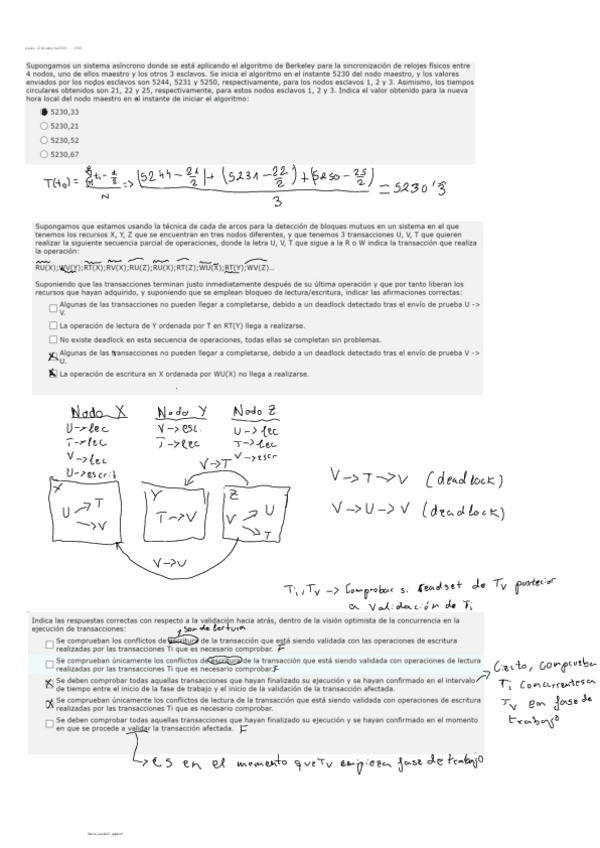 Supongamos un sistema asíncrono donde se está aplicando el algoritmo de Berkeley para la sincronización de relojes físicos entre
4 nodos, uno de ellos maestro y los otros 3 esclavos. Se inicia el algoritmo en el instante 5230 del nodo maestro, y los valores
enviados por los nodos esclavos son 5244, 5231 y 5250, respectivamente, para los nodos esclavos 1, 2 y 3. Asimismo, los tiempos
circulares obtenidos son 21, 22 y 25, respectivamente, para estos nodos esclavos 1, 2 y 3. Indica el valor obtenido para la nueva
hora local del nodo maestro en el instante de iniciar el algoritmo:
5230,33
5230,21
5230,52
5230,67
(5244 - 21/2) + (5231 - 22/2) + (5250 - 25/2)
3
= 5230'3
Supongamos que estamos usando la técnica de cada de arcos para la detección de bloques mutuos en un sistema en el que
tenemos los recursos X, Y, Z que se encuentran en tres nodos diferentes, y que tenemos 3 transacciones U, V, T que quieren
realizar la siguiente secuencia parcial de operaciones, donde la letra U, V, T que sigue a la R o W indica la transacción que realiza
la operación:
RU(X);WV(Y);RT(X);RV(X);RU(Z);RU(X);RT(Z);WU(X);RT(Y);WV(Z)...
Suponiendo que las transacciones terminan justo inmediatamente después de su última operación y que por tanto liberan los
recursos que hayan adquirido, y suponiendo que se emplean bloqueo de lectura/escritura, indicar las afirmaciones correctas:
Algunas de las transacciones no pueden llegar a completarse, debido a un deadlock detectado tras el envío de prueba U ->
V.
La operación de lectura de Y ordenada por T en RT(Y) llega a realizarse.
No existe deadlock en esta secuencia de operaciones, todas ellas se completan sin problemas.
Algunas de las transacciones no pueden llegar a completarse, debido a un deadlock detectado tras el envío de prueba V ->
U.
La operación de escritura en X ordenada por WU(X) no llega a realizarse.
Nodo X Nodo Y Nodo Z
U->lec V->esc. U->lec
T->lec T->lec T->lec
V->lec V->escr
U->escrit
V->T
X Y Z
U -> T
-> V
T->V
V -> U
-> T
V->U
V->T->V (deadlock)
V->U->V (deadlock)
Ti, Tv -> Comprobar si readset de Tv posterior
a validación de Ti
Indica las respuestas correctas con respecto a la validación hacia atrás, dentro de la visión optimista de la concurrencia en la
ejecución de transacciones:
son de lectura
Se comprueban los conflictos de escritura de la transacción que está siendo validada con las operaciones de escritura
realizadas por las transacciones Ti que es necesario comprobar. F
Se comprueban únicamente los conflictos de escritura de la transacción que está siendo validada con operaciones de lectura
realizadas por las transacciones Ti que es necesario comprobar. F
Se deben comprobar todas aquellas transacciones que hayan finalizado su ejecución y se hayan confirmado en el intervalo
de tiempo entre el inicio de la fase de trabajo y el inicio de la validación de la transacción afectada.
Se comprueban únicamente los conflictos de lectura de la transacción que está siendo validada con operaciones de escritura
realizadas por las transacciones Ti que es necesario comprobar.
Se deben comprobar todas aquellas transacciones que hayan finalizado su ejecución y se hayan confirmado en el momento
en que se procede a validar la transacción afectada. F
Cierto, comprueban
Ti concurrentes a
Tv en fase de
trabajo
es en el momento que Tv empieza fase de trabajo